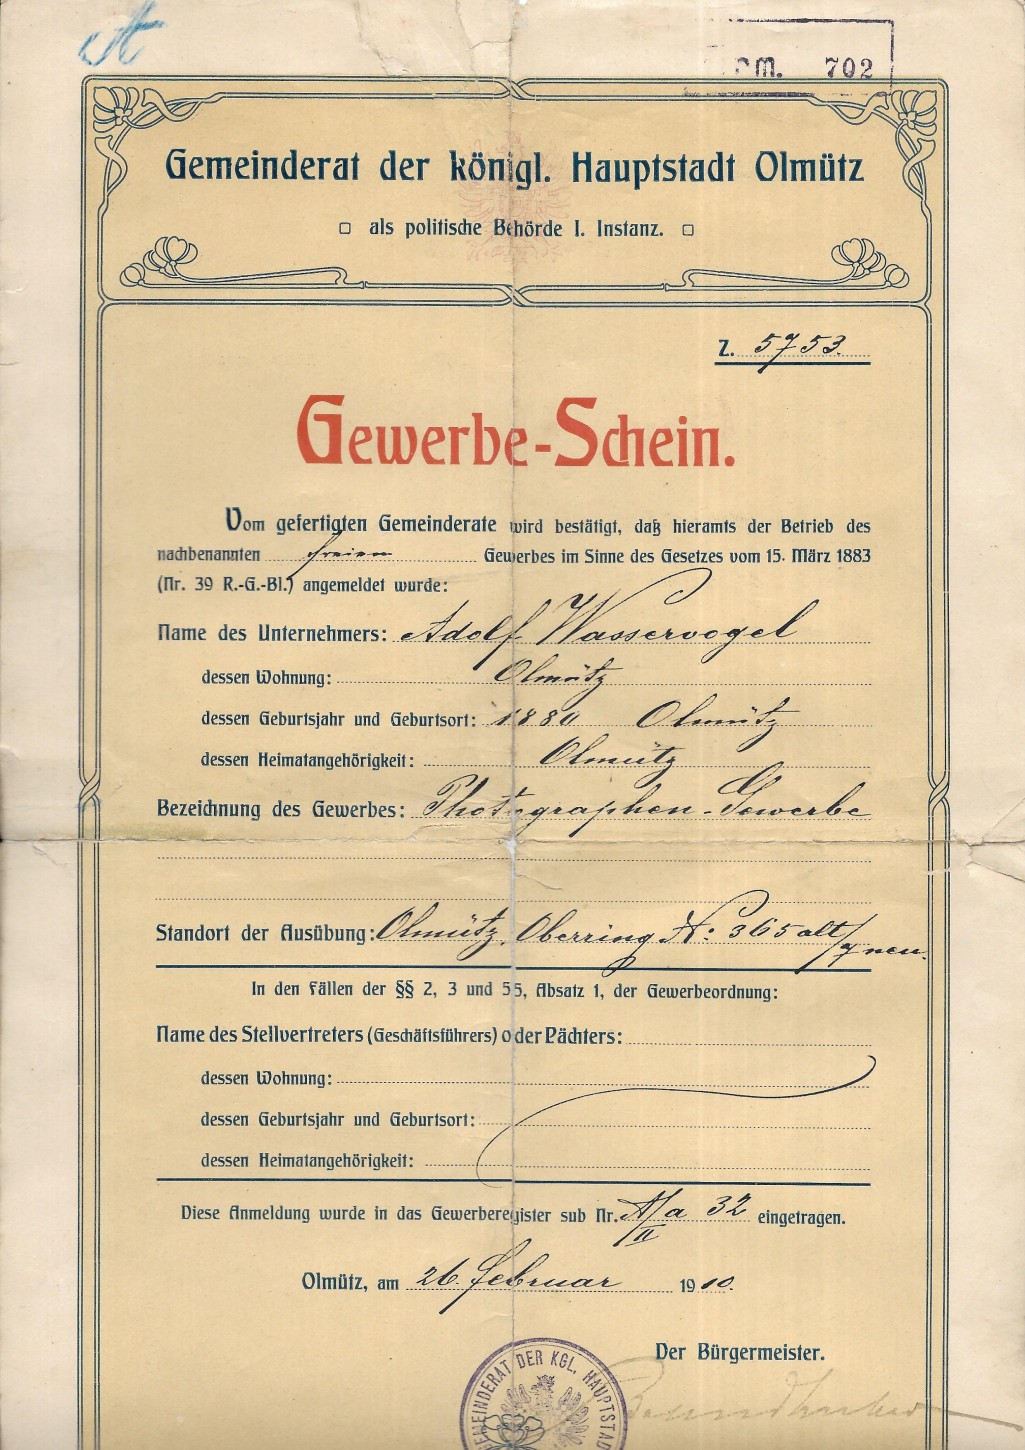 702
Gemeinderat der königl. Hauptstadt Olmütz
als politische Behörde I. Instanz.
Z. 5753.
Gewerbe-Schein.
Vom gefertigten Gemeinderate wird bestätigt, daß hieramts der Betrieb des
nachbenannten freien Gewerbes im Sinne des Gesetzes vom 15. März 1883
(Nr. 39 R.-G.-Bl.) angemeldet wurde:
Name des Unternehmers: Adolf Wasservogel
dessen Wohnung: Olmütz
dessen Geburtsjahr und Geburtsort: 1880 Olmütz
dessen Heimatangehörigkeit: Olmütz
Bezeichnung des Gewerbes: Photographen-Gewerbe
Standort der Ausübung: Olmütz, Oberring No 365 alt/7 neu.
In den Fällen der §§ 2, 3 und 55, Absatz 1, der Gewerbeordnung:
Name des Stellvertreters (Geschäftsführers) oder Pächters:
dessen Wohnung:
dessen Geburtsjahr und Geburtsort:
dessen Heimatangehörigkeit:
Diese Anmeldung wurde in das Gewerberegister sub Nr. A/a 32 eingetragen.
II
Olmütz, am 26. Februar 1910.
Der Bürgermeister.
GEMEINDERAT DER KGL. HAUPTSTAD